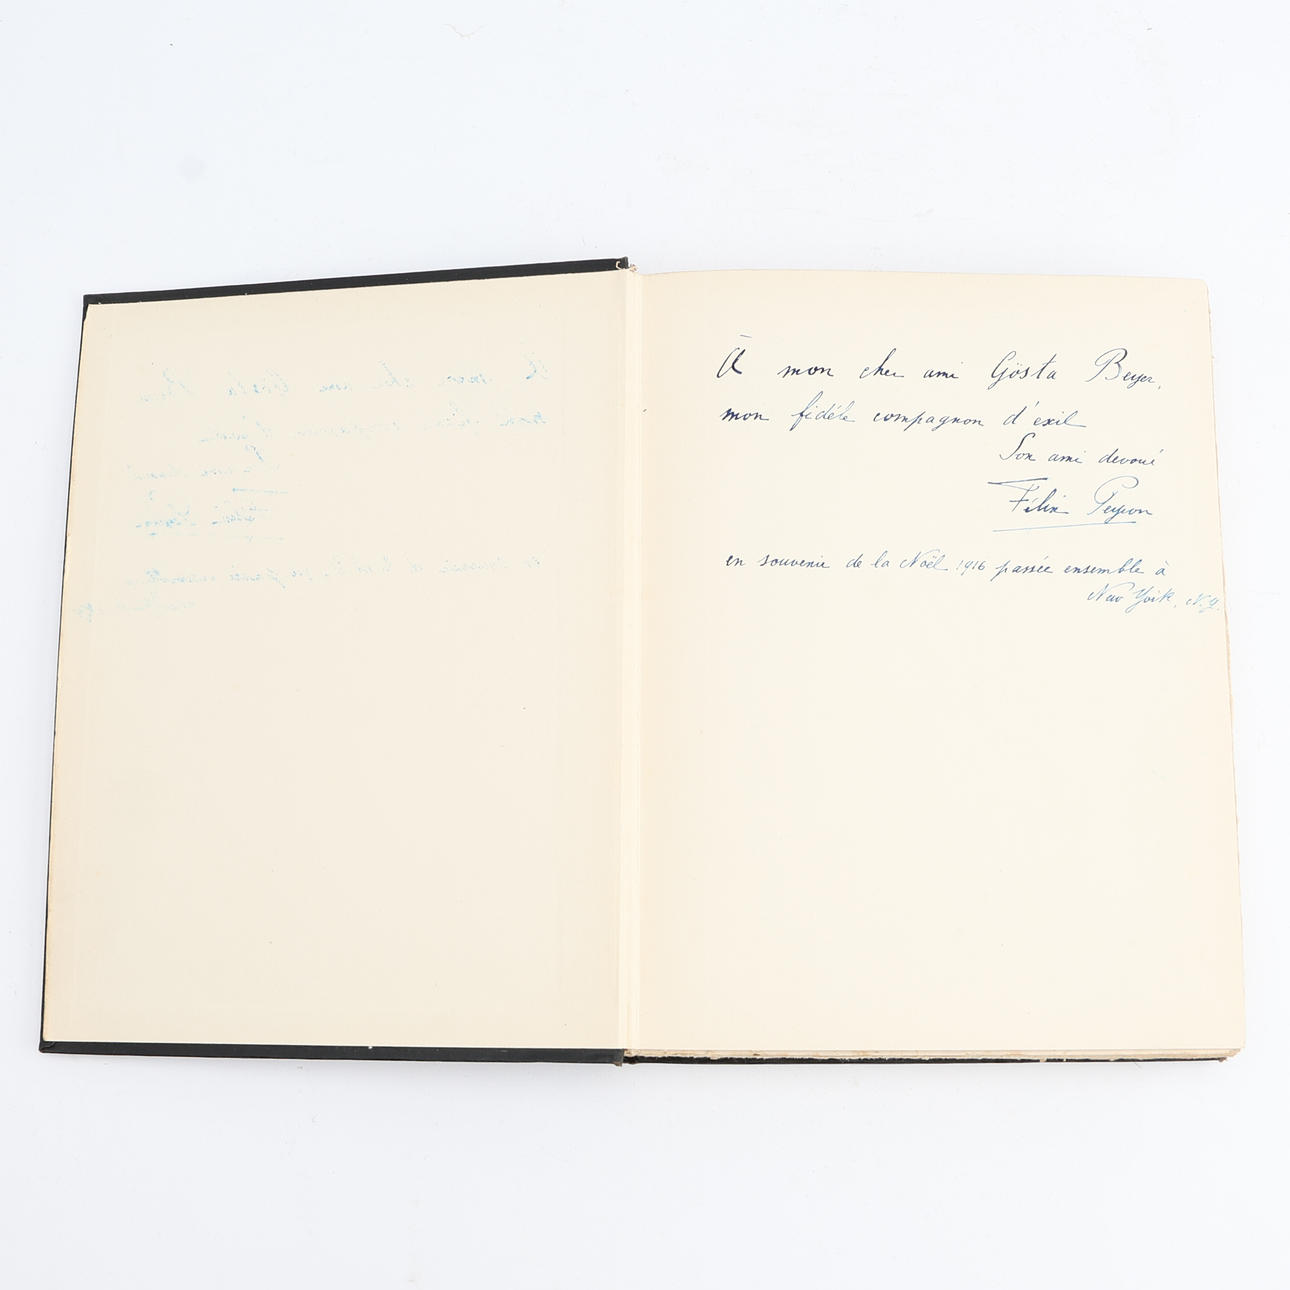 À mon cher ami Gösta Beyer,
mon fidéle compagnon d'exil
Son ami devoué
Félix Peyron
en souvenir de la Noël 1916 passée ensemble à
New York, N.Y.